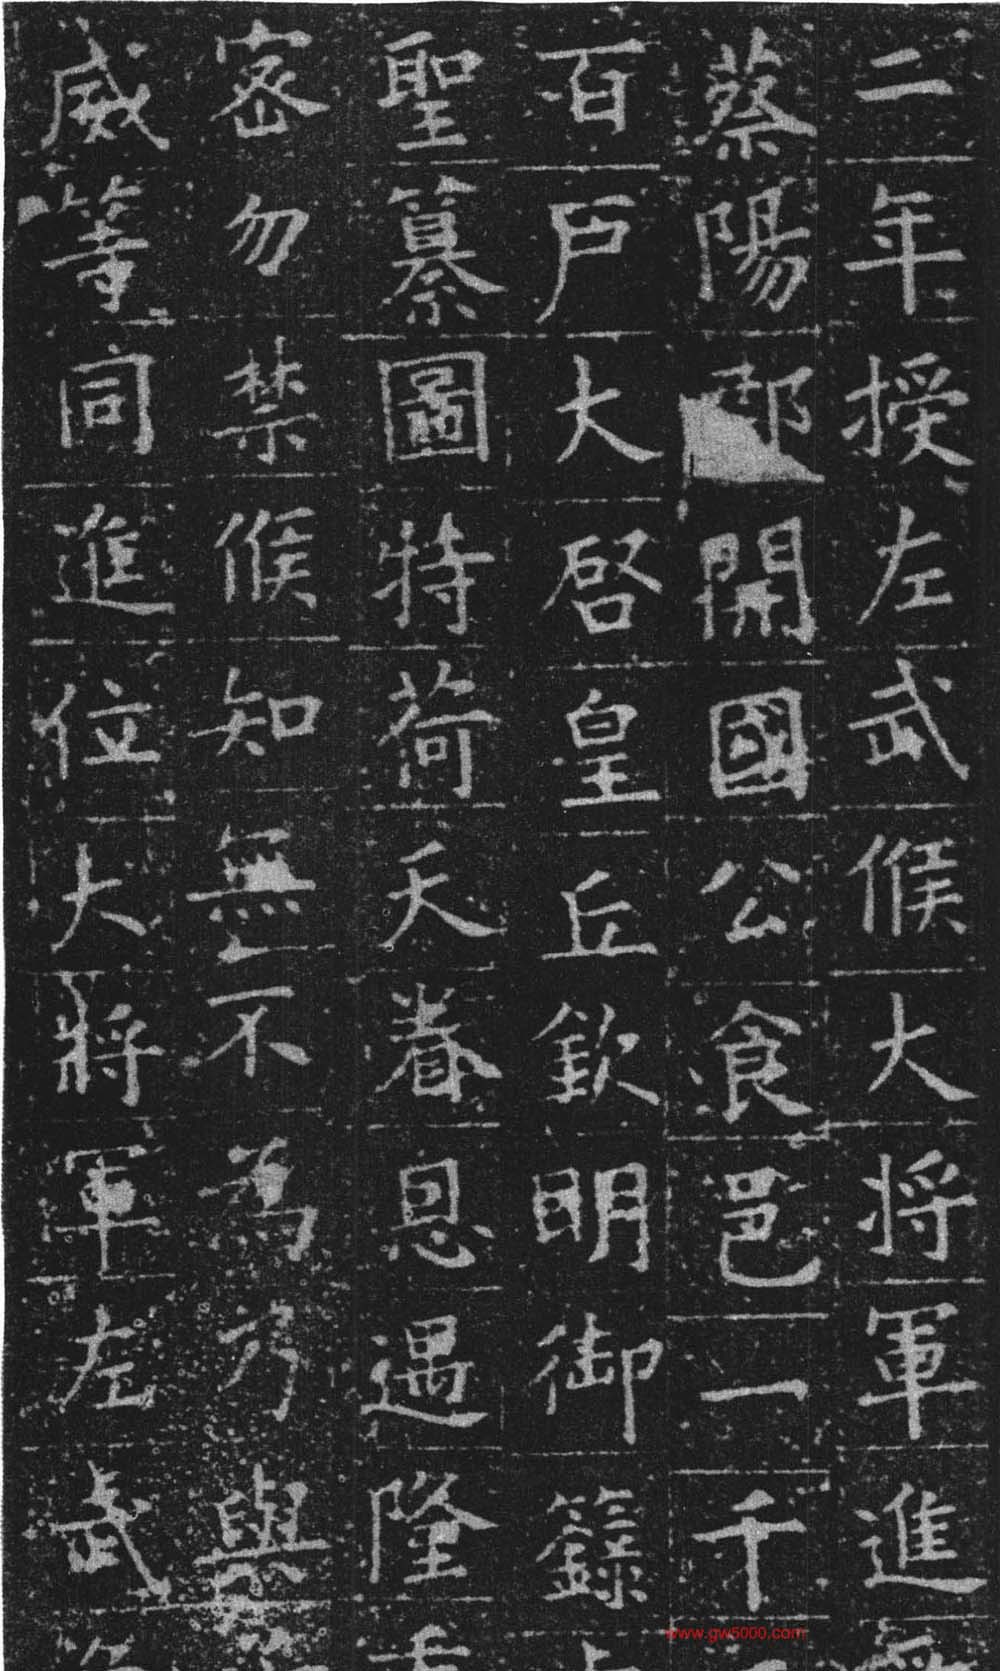 二年授左武候大將軍進
蔡陽郡開國公食邑一千
百戶大啓皇丘欽明御籙
聖纂圖特荷天眷恩遇隆
密勿禁候知無不爲乃與
威等同進位大將軍左武
www.gw5000.com